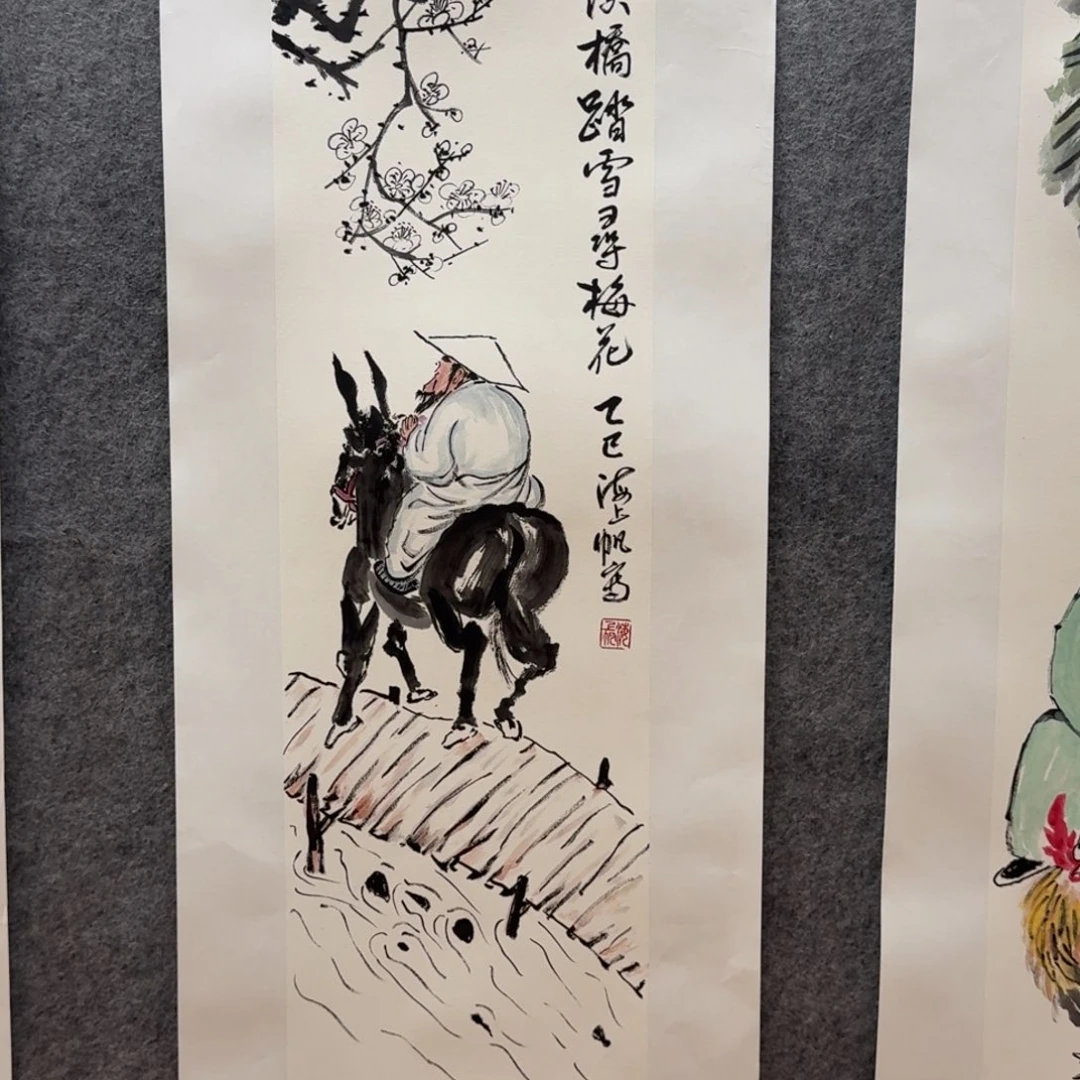 橋踏雪尋梅花 乙巳海上帆寫